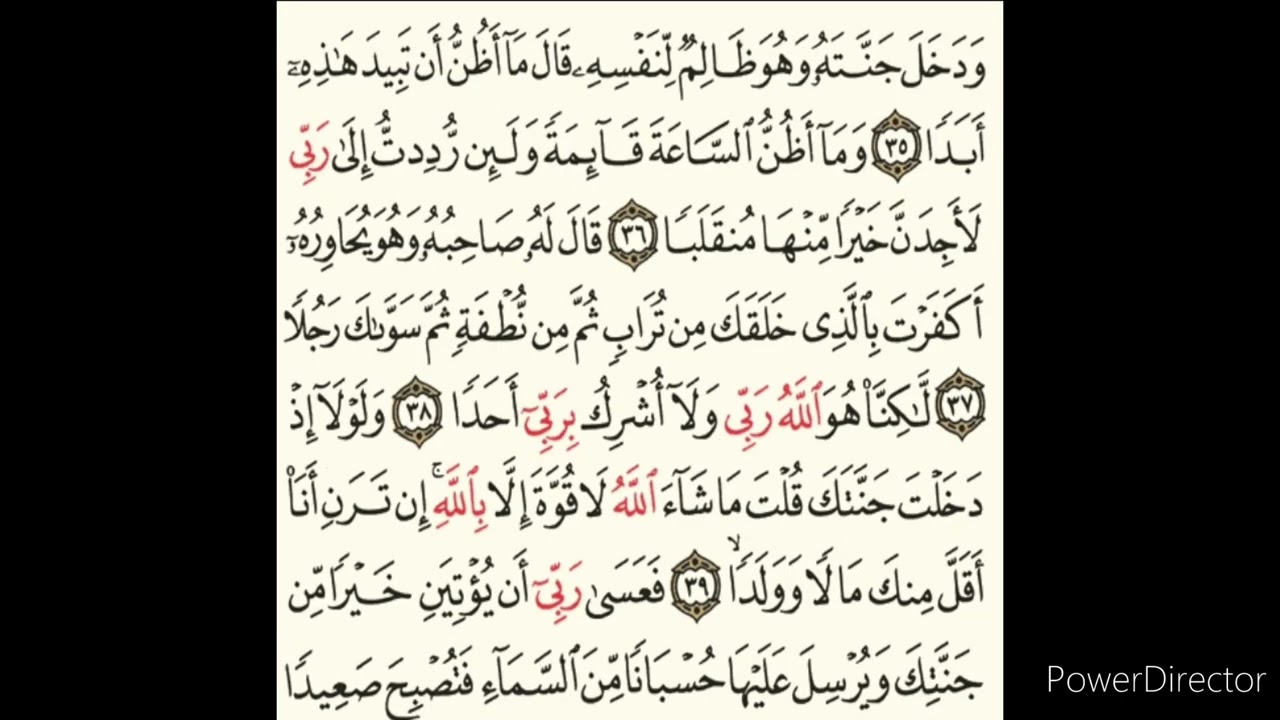 وَدَخَلَ جَنَّتَهُۥ وَهُوَ ظَالِمٌ لِّنَفْسِهِۦ قَالَ مَآ أَظُنُّ أَن تَبِيدَ هَٰذِهِۦٓ
أَبَدًا ٣٥ وَمَآ أَظُنُّ ٱلسَّاعَةَ قَآئِمَةً وَلَئِن رُّدِدتُّ إِلَىٰ رَبِّى
لَأَجِدَنَّ خَيْرًا مِّنْهَا مُنقَلَبًا ٣٦ قَالَ لَهُۥ صَاحِبُهُۥ وَهُوَ يُحَاوِرُهُۥٓ
أَكَفَرْتَ بِٱلَّذِى خَلَقَكَ مِن تُرَابٍ ثُمَّ مِن نُّطْفَةٍ ثُمَّ سَوَّىٰكَ رَجُلًا
٣٧ لَّٰكِنَّا۠ هُوَ ٱللَّهُ رَبِّى وَلَآ أُشْرِكُ بِرَبِّىٓ أَحَدًا ٣٨ وَلَوْلَآ إِذْ
دَخَلْتَ جَنَّتَكَ قُلْتَ مَا شَآءَ ٱللَّهُ لَا قُوَّةَ إِلَّا بِٱللَّهِ ۚ إِن تَرَنِ أَنَا۠
أَقَلَّ مِنكَ مَالًا وَوَلَدًا ۙ ٣٩ فَعَسَىٰ رَبِّىٓ أَن يُؤْتِيَنِ خَيْرًا مِّن
جَنَّتِكَ وَيُرْسِلَ عَلَيْهَا حُسْبَانًا مِّنَ ٱلسَّمَآءِ فَتُصْبِحَ صَعِيدًا
PowerDirector